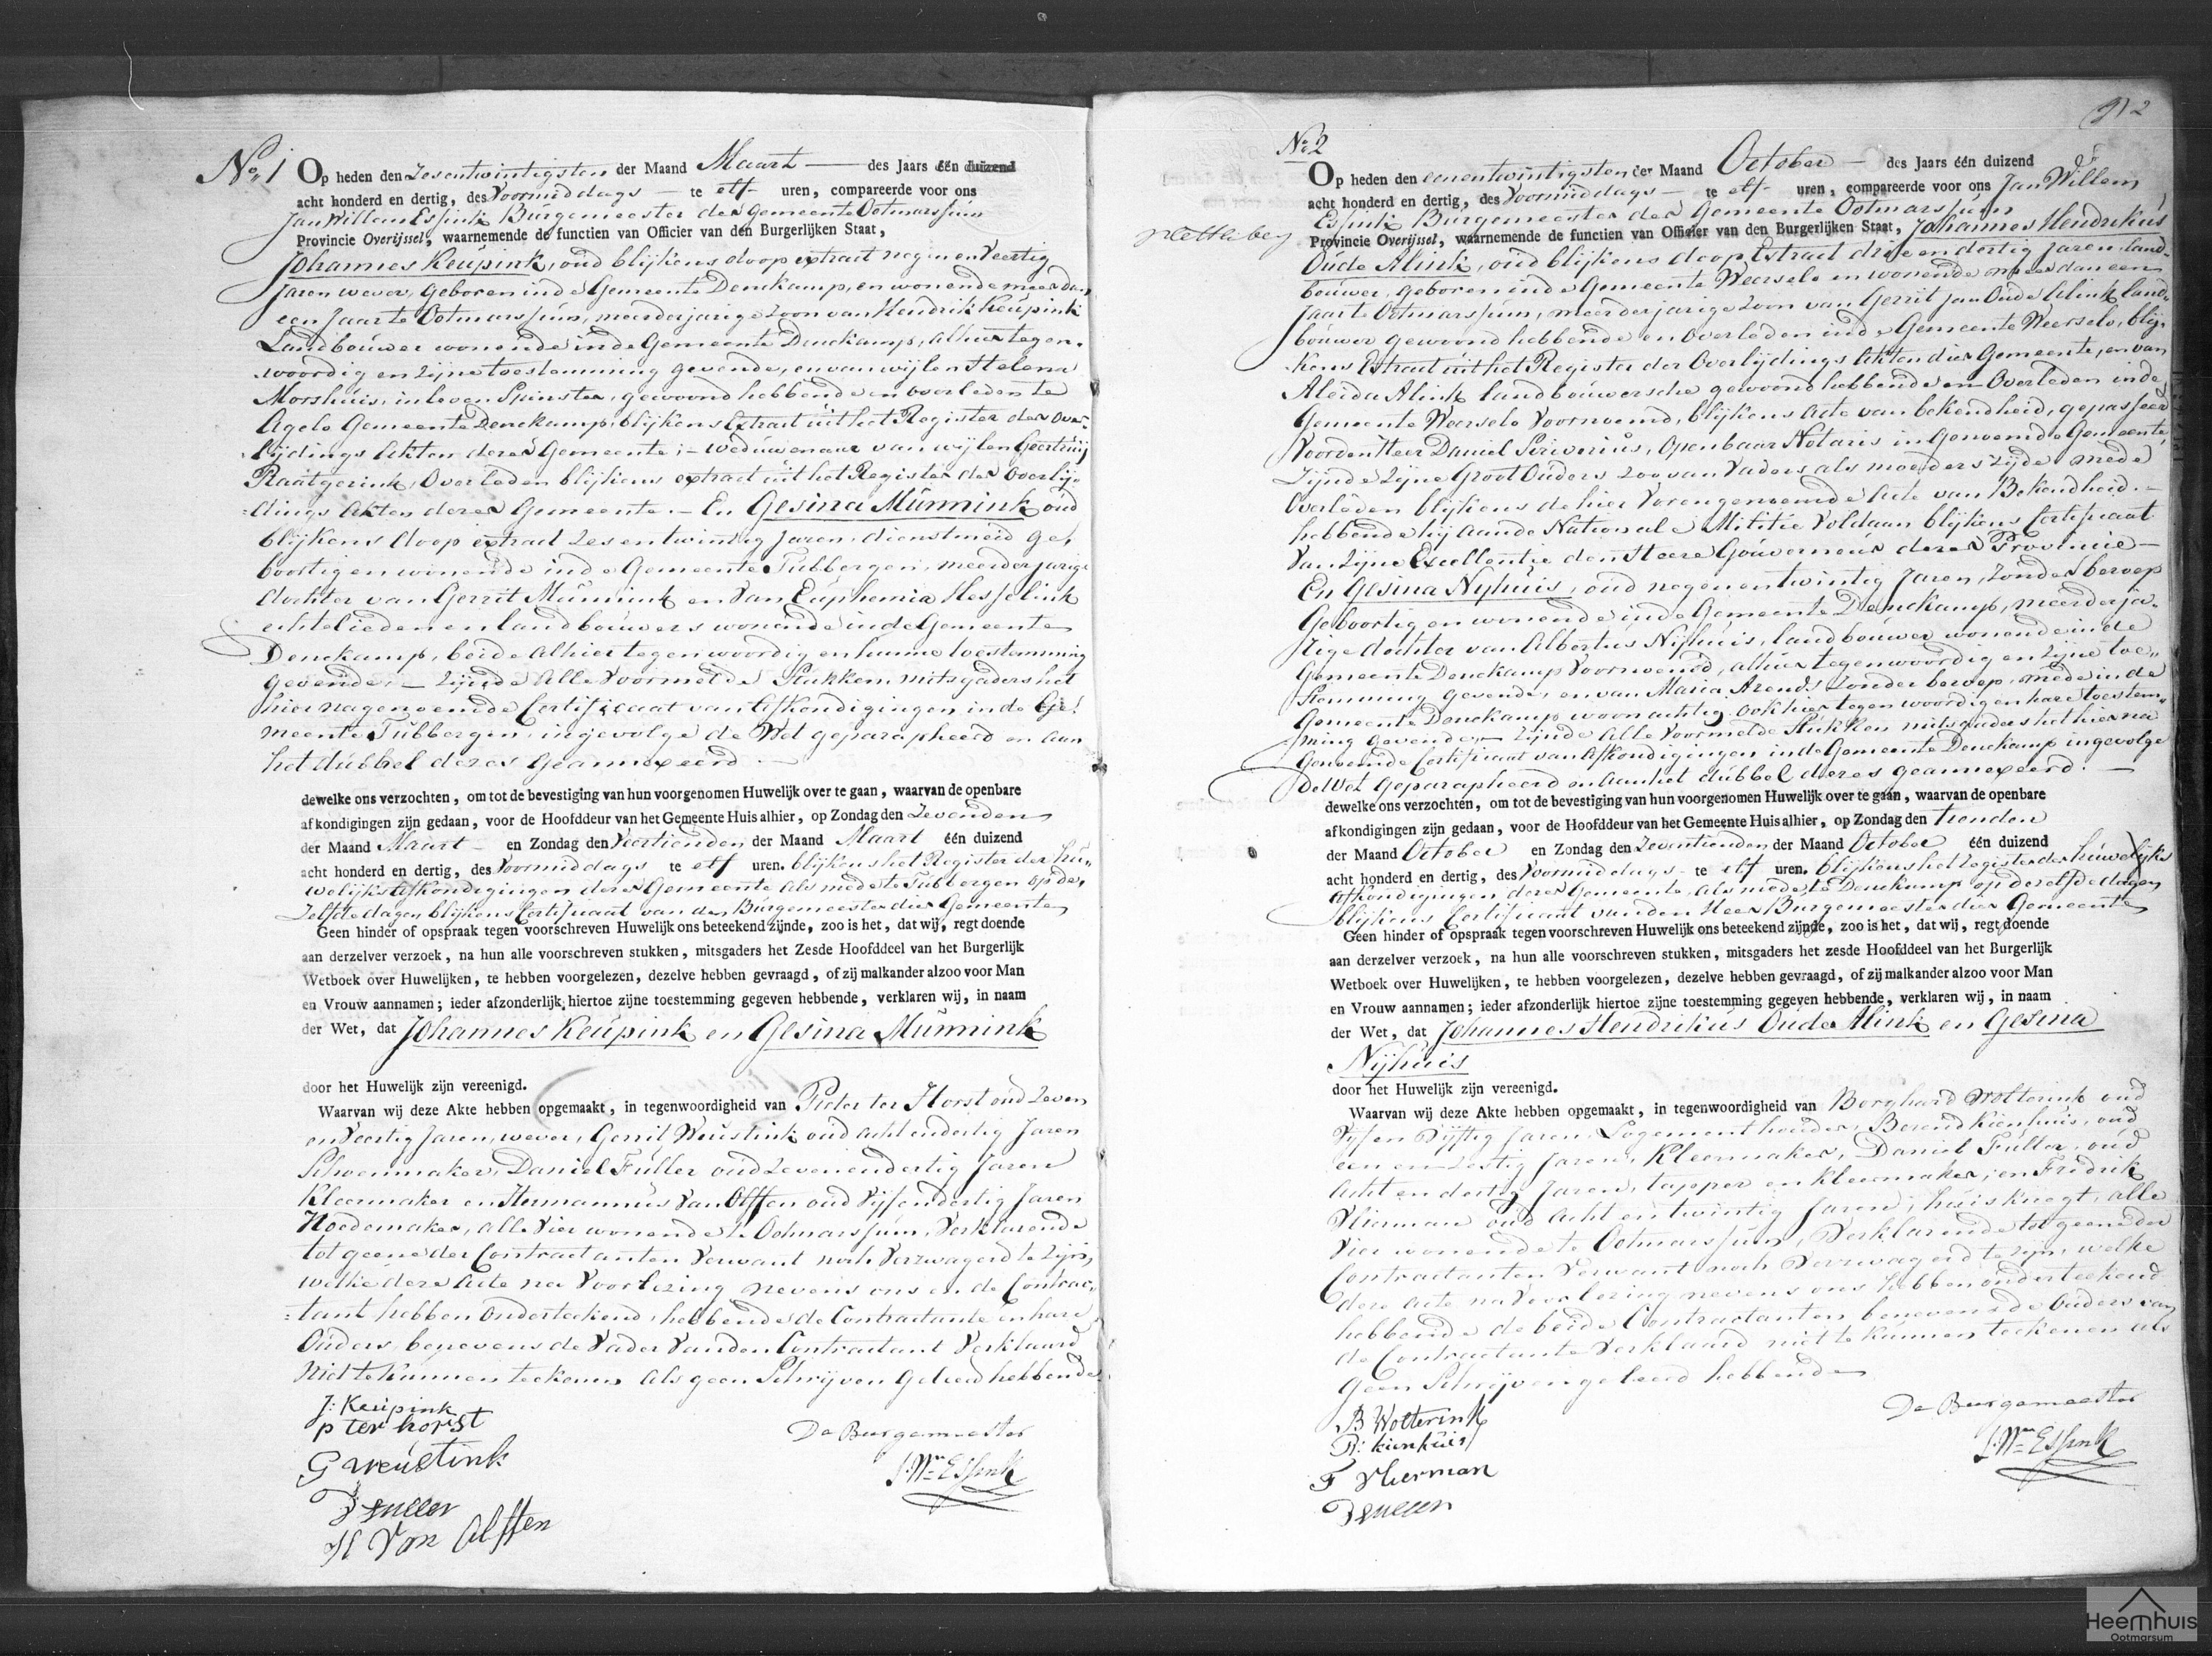 No. 1 Op heden den Zesentwintigsten der Maand Maart des Jaars één duizend
acht honderd en dertig, des Voormiddags te elf uren, compareerde voor ons
Jan Willem Essink Burgemeester der Gemeente Ootmarssum
Provincie Overijssel, waarnemende de functien van Officier van den Burgerlijken Staat,
Johannes Keupink, oud blijkens doop extract negen en Veertig
Jaren wever, Geboren in de Gemeente Denekamp, en wonende meer dan
een Jaar te Ootmarssum, meerderjarige Zoon van Hendrik Keupink
Landbouwer wonende in de Gemeente Denekamp, alhier tegen-
woordig en zijne toestemming gevende, en van wijlen Helena
Morshuis, in leven Spinster, gewoond hebbende en overleden te
Agelo Gemeente Denekamp, blijkens Extract uit het Register der Over-
lijdings Akten dezer Gemeente; - Weduwenaar van wijlen Geertruij
Raatgerink, Overleden blijkens extract uit het Register der Overlij-
dings Akten dezer Gemeente. - En Gesina Munnink oud
blijkens doop extract Zes en twintig Jaren, dienstmeid ge-
boortig en wonende in de Gemeente Tubbergen, meerderjarige
dochter van Gerrit Munnink en Van Euphemia Hesselink
echtelieden en landbouwers wonende in de Gemeente
Denekamp, beide alhier tegenwoordig en hunne toestemming
gevende; - zijnde alle Voormelde Stukken mitsgaders het
hier nagenoemde Certificaat van Afkondigingen in de Ge-
meente Tubbergen, ingevolge de Wet geparapheerd en aan
het dubbel dezes Geannexeerd.
dewelke ons verzochten, om tot de bevestiging van hun voorgenomen Huwelijk over te gaan, waarvan de openbare
afkondigingen zijn gedaan, voor de Hoofddeur van het Gemeente Huis alhier, op Zondag den Zevenden
der Maand Maart en Zondag den Veertienden der Maand Maart één duizend
acht honderd en dertig, des Voormiddags te elf uren. blijkens het Register der Hu-
welijks Afkondigingen dezer Gemeente als mede te Tubbergen op de
Zelfde dagen blijkens Certificaat van den Burgemeester dier Gemeente
Geen hinder of opspraak tegen voorschreven Huwelijk ons beteekend zijnde, zoo is het, dat wij, regt doende
aan derzelver verzoek, na hun alle voorschreven stukken, mitsgaders het Zesde Hoofddeel van het Burgerlijk
Wetboek over Huwelijken, te hebben voorgelezen, dezelve hebben gevraagd, of zij malkander alzoo voor Man
en Vrouw aannamen; ieder afzonderlijk hiertoe zijne toestemming gegeven hebbende, verklaren wij, in naam
der Wet, dat Johannes Keupink en Gesina Munnink
door het Huwelijk zijn vereenigd.
Waarvan wij deze Akte hebben opgemaakt, in tegenwoordigheid van Pieter ter Horst oud Zeven
en Veertig Jaren, wever, Gerrit Weustink oud acht en dertig Jaren
Schoenmaker, Daniel Fuller oud Zeven en dertig Jaren
Kleermaker en Hermannus Van Olffen oud Vijf en dertig Jaren
Hoedemaker, alle Vier wonende te Ootmarssum, Verklarende
tot geene der Contractanten Verwant noch Verzwagerd te zijn,
welke deze Acte na Voorlezing nevens ons en de Contrac-
tant hebben Onderteekend, hebbende de Contractante en hare
Ouders benevens de Vader Van den Contractant Verklaard
Niet te Kunnen teekenen als geen Schrijven Geleerd hebbende
J: Keupink
p ter horst
G weustink
D Fuller
H Van Olffen
De Burgemeester
J. Wm Essink
2
No. 2
Op heden den eenentwintigsten der Maand October des Jaars één duizend
acht honderd en dertig, des Voormiddags te elf uren, compareerde voor ons Jan Willem
Essink Burgemeester der Gemeente Ootmarssum
Provincie Overijssel, waarnemende de functien van Officier van den Burgerlijken Staat, Johannes Hendrikus
Oude Alink, oud blijkens doop Extract drie en dertig Jaren, land-
bouwer, geboren in de Gemeente Weerselo en wonende meer dan een
Jaar te Ootmarssum, meerderjarige Zoon van Gerrit Jan Oude Alink land-
bouwer gewoond hebbende en Overleden in de Gemeente Weerselo, blij-
kens Extract uit het Register der Overlijdings Akten dier Gemeente, en van
Aleida Alink landbouwersche gewoond hebbende en Overleden in de
Gemeente Weerselo Voornoemd, blijkens Acte van bekendheid, gepasseerd
Voor den Heer Daniel Scriverius, Openbaar Notaris in Genoemde Gemeente,
Zijnde Zijne Groot Ouders zoo van Vaders als moeders zijde mede
Overleden blijkens de hier Voren genoemde Acte van Bekendheid. -
hebbende hij aan de Nationale Militie Voldaan blijkens Certificaat
Van Zijne Excellentie den Heere Gouverneur dezer Provincie -
En Gesina Nijhuis, oud negen en twintig Jaren, Zonder beroep
Geboortig en wonende in de Gemeente Denekamp, meerderja-
rige dochter van Albertus Nijhuis, landbouwer wonende in de
Gemeente Denekamp Voornoemd, alhier tegenwoordig en zijne toe-
stemming gevende, en van Maria Arends zonder beroep, mede in de
Gemeente Denekamp woonachtig, ook hier tegenwoordig en hare toestem-
ming gevende; - zijnde alle Voormelde Stukken mitsgaders het hier na
Genoemde Certificaat van Afkondigingen in de Gemeente Denekamp ingevolge
de Wet Geparapheerd en aan het dubbel dezes geannexeerd.
dewelke ons verzochten, om tot de bevestiging van hun voorgenomen Huwelijk over te gaan, waarvan de openbare
afkondigingen zijn gedaan, voor de Hoofddeur van het Gemeente Huis alhier, op Zondag den tienden
der Maand October en Zondag den Zeventienden der Maand October één duizend
acht honderd en dertig, des Voormiddags te elf uren. blijkens het register der huwelijks
afkondigingen dezer Gemeente, als mede te Denekamp op dezelfde dagen
blijkens Certificaat van den Heer Burgemeester dier Gemeente
Geen hinder of opspraak tegen voorschreven Huwelijk ons beteekend zijnde, zoo is het, dat wij, regt doende
aan derzelver verzoek, na hun alle voorschreven stukken, mitsgaders het zesde Hoofddeel van het Burgerlijk
Wetboek over Huwelijken, te hebben voorgelezen, dezelve hebben gevraagd, of zij malkander alzoo voor Man
en Vrouw aannamen; ieder afzonderlijk hiertoe zijne toestemming gegeven hebbende, verklaren wij, in naam
der Wet, dat Johannes Hendrikus Oude Alink en Gesina
Nijhuis
door het Huwelijk zijn vereenigd.
Waarvan wij deze Akte hebben opgemaakt, in tegenwoordigheid van Borghard Wolterink oud
Vijf en Vijftig Jaren, Logementhouder, Berend Kienhuis, oud
een en Zestig Jaren, Kleermaker, Daniel Fuller, oud
Acht en dertig Jaren, tapper en kleermaker; en Fredrik
Vlierman oud acht en twintig Jaren, huisknegt, alle
Vier wonende te Ootmarssum, Verklarende tot geene der
Contractanten Verwant noch Verzwagerd te zijn, welke
deze Acte na Voorlezing nevens ons hebben onderteekend
hebbende de beide Contractanten benevens de Ouders van
de Contractante Verklaard niet te Kunnen teekenen als
Geen Schrijven geleerd hebbende
B Wolterink
B: kienhuis
F Vlierman
D Fuller
De Burgemeester
J. Wm Essink
Heemhuis
Ootmarsum